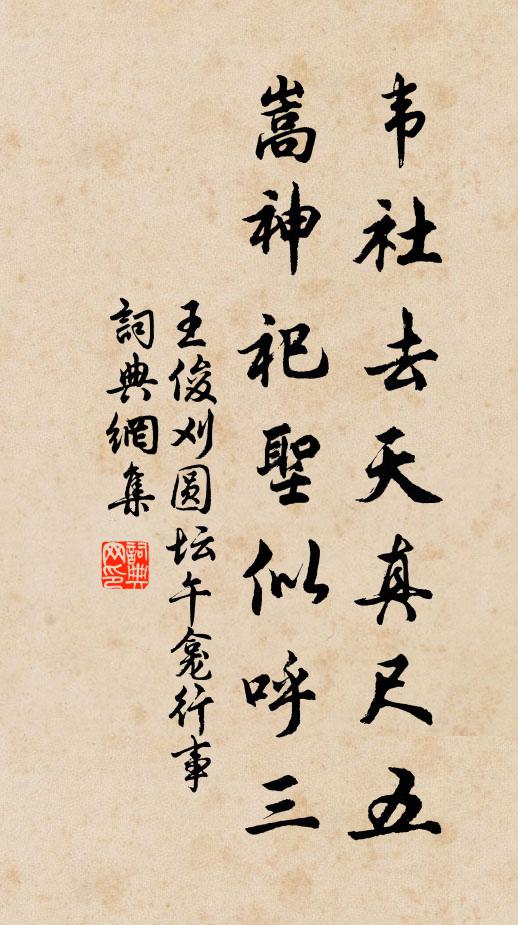 韦社去天真尺五
嵩神祀聖似呼三
王俊刈圆坛午龛行事
詞典網集
詞典网印